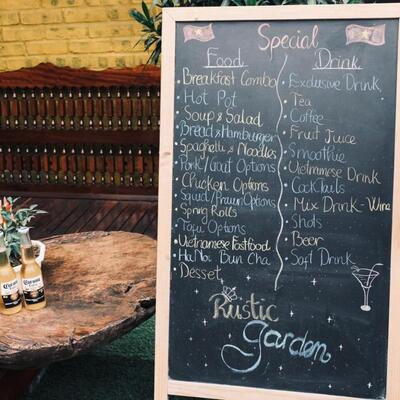 Special
Food
Breakfast Combo
Hot Pot
Soup & Salad
Bread & Hamburger
Spaghetti & Noodles
Pork/Goat Options
Chicken Options
Squid/Prawn Options
Spring Rolls
Tofu Options
Vietnamese Fastfood
HaNoi Bun Cha
Desset
Drink
Exclusive Drink
Tea
Coffee
Fruit Juice
Smoothie
Vietnamese Drink
Cocktails
Mix Drink - Wine
Shots
Beer
Soft Drink
Rustic
Garden
Corona
Corona